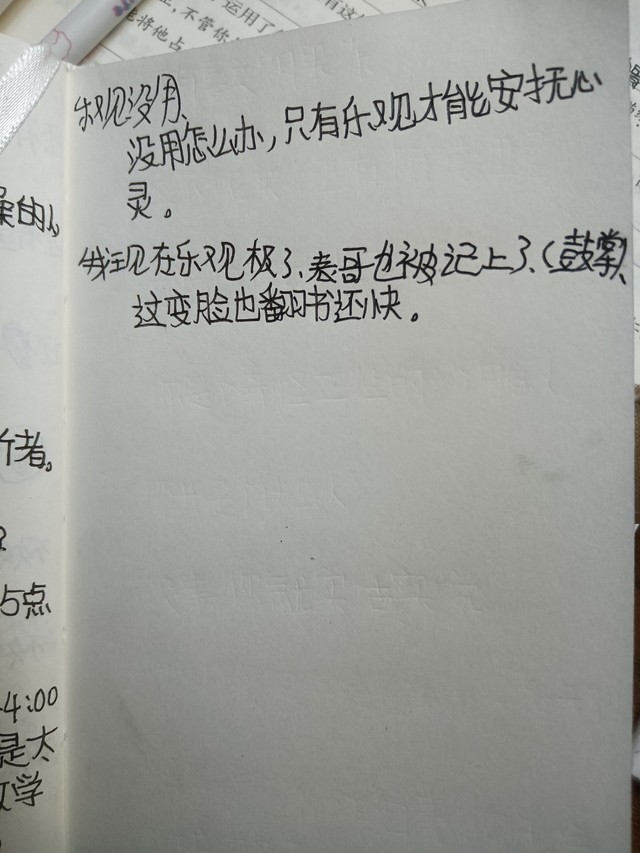 运用了
有这
，不管你
能将他占
乐观没用、
没用怎么办，只有乐观才能安抚心
灵。
我现在乐观极了、表哥也被记上了、（鼓掌）、
这变脸也翻书还快。
的人
行者。
?
5点
4:00
是太
学